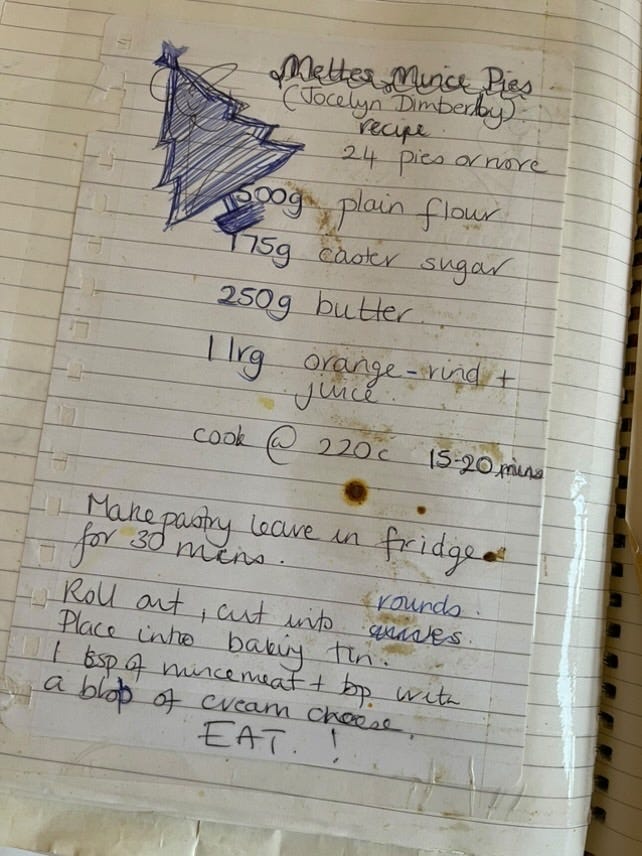 Metter Mince Pies
(Jocelyn Dimberlby)
recipe.
24 pies or more
500g plain flour
175g caster sugar
250g butter.
1 lrg orange - rind +
juice.
cook @ 220c 15-20 mins
Make pastry leave in fridge
for 30 mins.
Roll out, cut into rounds.
Place into baking tin.
1 tsp of mincemeat + top with
a blob of cream cheese.
EAT. !